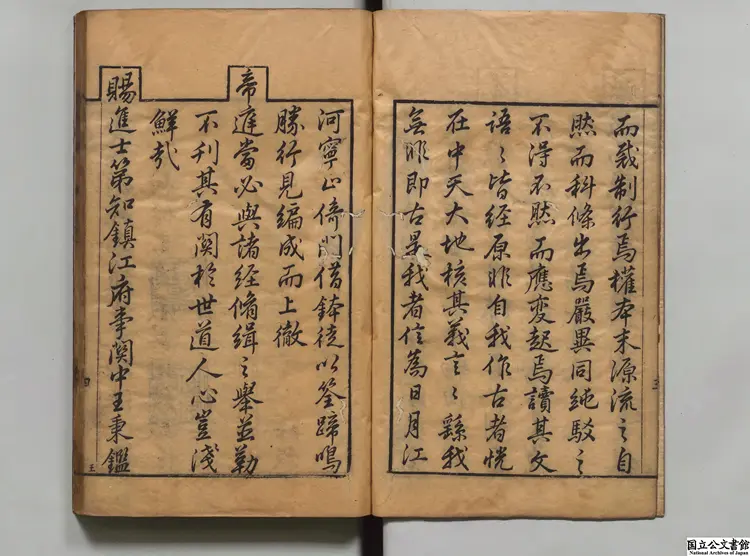 而裁制行焉權本末源流之自
然而科條出焉嚴異同純駁之
不得不然而應變起焉讀其文
語〻皆經原非自我作古者恍
在中天大地核其義言〻繇我
無非即古是我者信為日月江
河寧止倚門借鉢徒以筌蹄鳴
勝行見編成而上徹
帝廷當必與諸經脩緝之舉並勒
不刊其有關於世道人心豈淺
鮮哉
賜進士第知鎮江府事關中王秉鑑
三
四
五
国立公文書館
National Archives of Japan